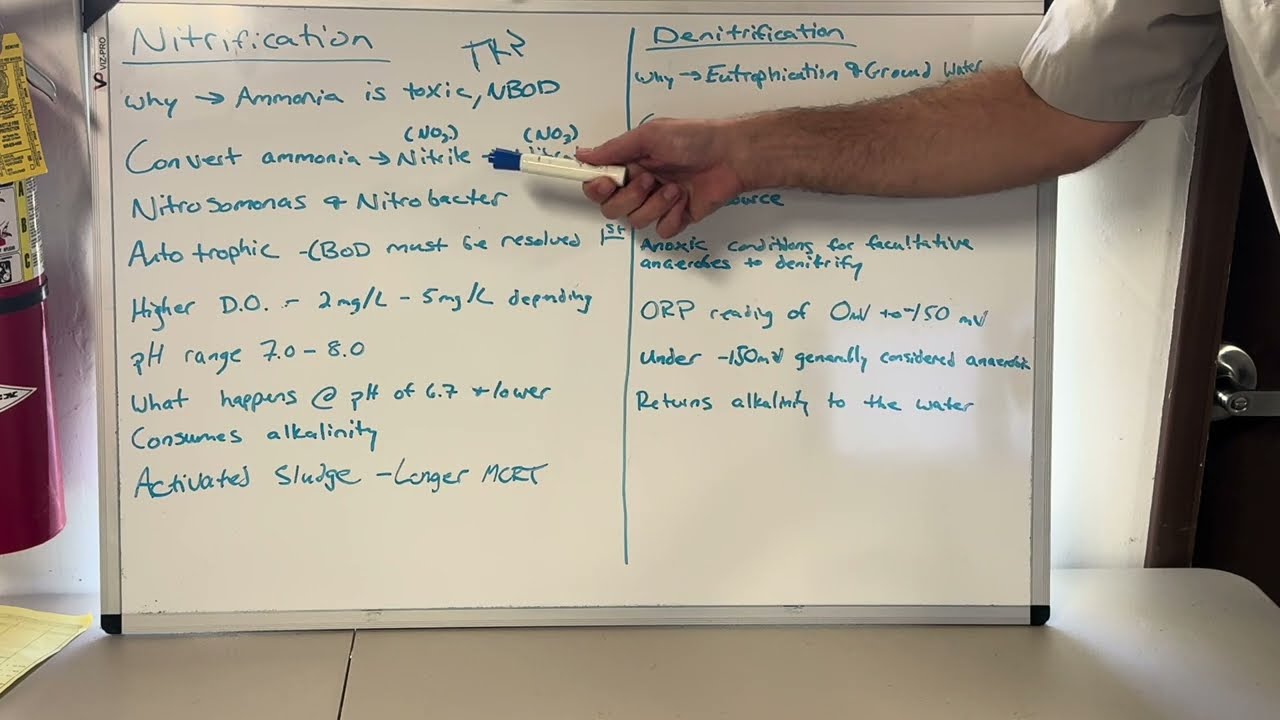 VIZ-PRO
Nitrification
TKN
Why → Ammonia is toxic, NBOD
(NO2) (NO3)
Convert ammonia → Nitrite →
Nitrosomonas & Nitrobacter
Autotrophic - CBOD must be resolved 1st
Higher D.O. - 2mg/L - 5mg/L depending
pH range 7.0 - 8.0
What happens @ pH of 6.7 & lower
Consumes alkalinity
Activated Sludge - Longer MCRT
Denitrification
Why → Eutrophication & Ground Water
Anoxic conditions for facultative
anaerobes to denitrify
ORP reading of 0mV to -150 mV
Under -150mV generally considered anaerobic
Returns alkalinity to the water